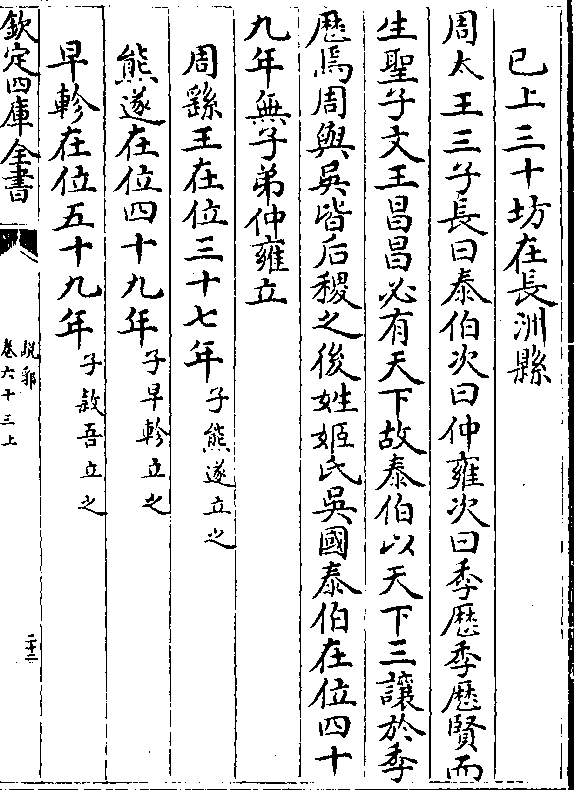 已上三十坊在長洲縣
周太王三子長曰泰伯次曰仲雍次曰季歷季歷賢而
生聖子文王昌昌必有天下故泰伯以天下三讓於季
歷焉周與吳皆后稷之後姓姬氏吳國泰伯在位四十
九年無子弟仲雍立
周繇王在位三十七年子熊遂立之
熊遂在位四十九年子早軫立之
早軫在位五十九年子敘吾立之
欽定四庫全書
說郛
卷六十三上